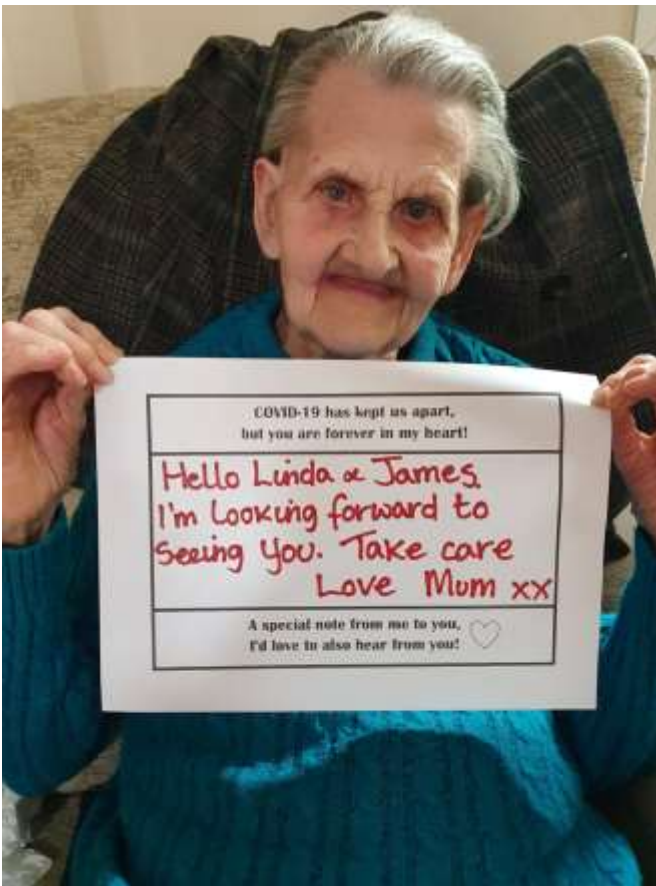 COVID-19 has kept us apart,
but you are forever in my heart!
Hello Linda & James.
I'm Looking forward to
Seeing You. Take care
Love Mum xx
A special note from me to you,
I'd love to also hear from you!